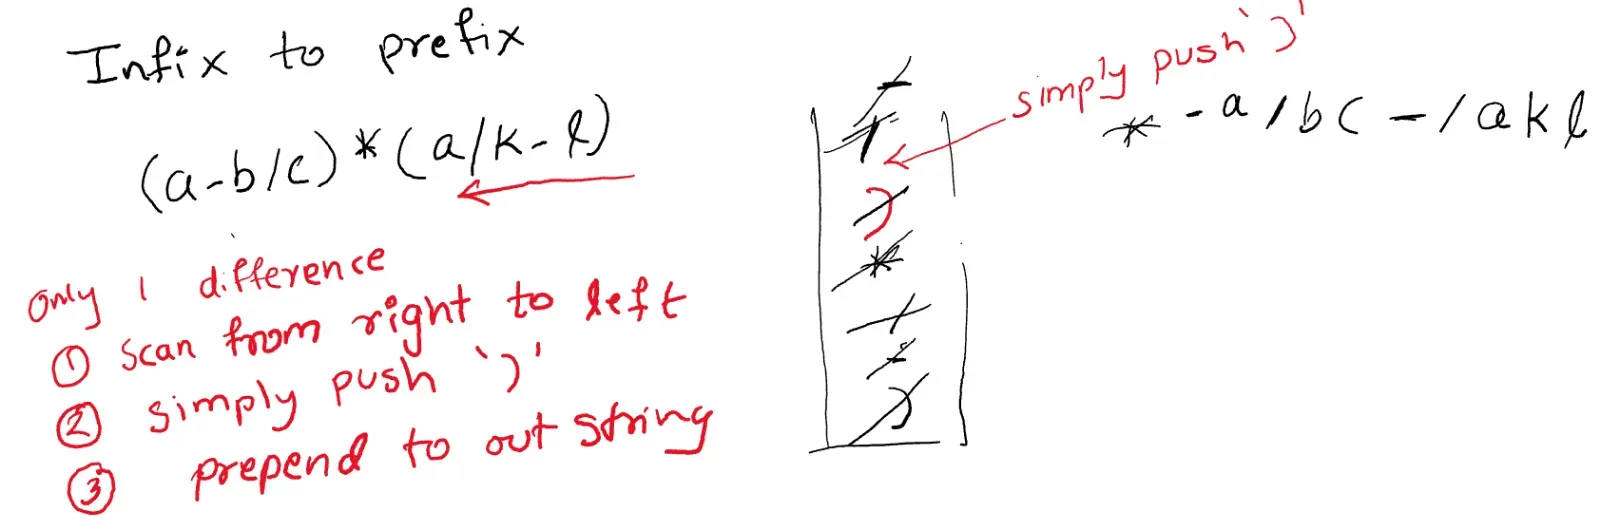 Infix to prefix
(a-b/c)*(a/k-l)
only 1 difference
① scan from right to left
② simply push ')'
③ prepend to out string
simply push ')'
-
/
)
*
/
-
)
* - a / b c - / a k l